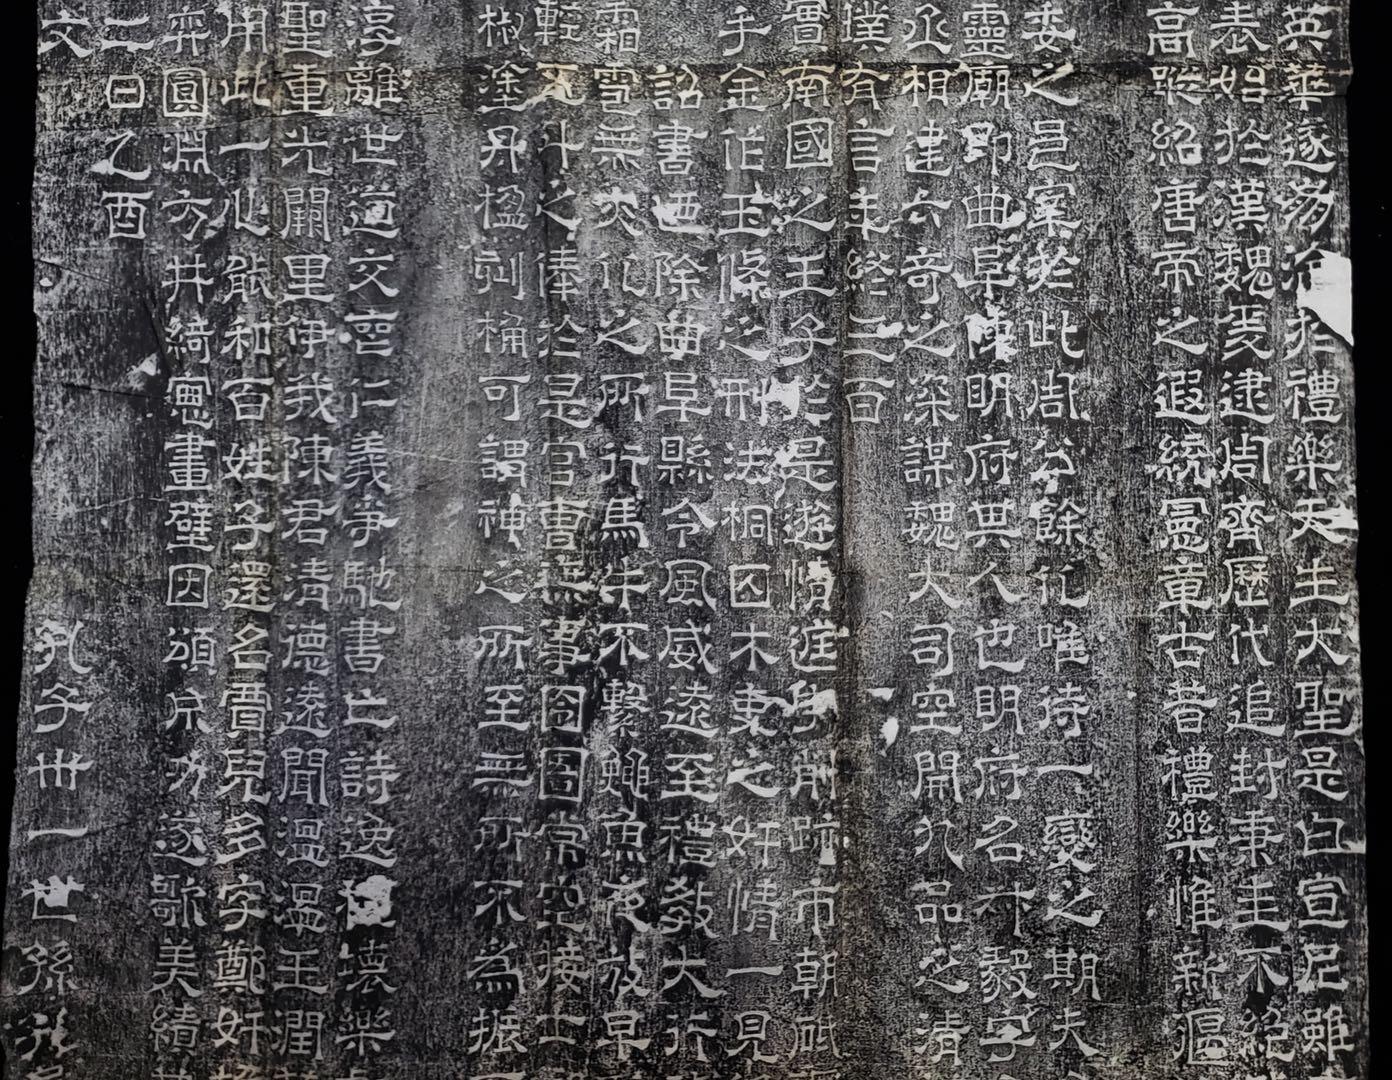 英華遂蕩淪於禮樂天生大聖是曰宣尼雖
表始於漢魏爰逮周齊歷代追封秉圭不絕
高蹤紹唐帝之遐統憲章古昔禮樂惟新
委之邑寔於此周公餘化唯待一變之期夫
靈廟即曲阜陳明府其人也明府名叔毅字
丞相建六奇之深謀魏大司空開九品之清
璞有言年終三百
賓南國之王子於是遊情庭削跡市朝砥
手金作玉條之刑法桐囚木吏之奸情一見
詔書迺除曲阜縣令風威遠至禮教大行
霜雪無災化之所行馬牛不繫鰥魚夜放早
輕死斗之俸於是官曹無事囹圄常空接士
椒塗丹楹刻桷可謂神之所至無所不為振
淳離世道交喪仁義爭馳書亡詩逸禮壞樂
聖重光闕里伊我陳君清德遠聞溫溫玉潤
用此一心能和百姓子還名賈兒多字鄭奸
弈圓淵方井綺窗畫壁因頌成功遂歌美績
二日乙酉
文 孔子卅一世孫